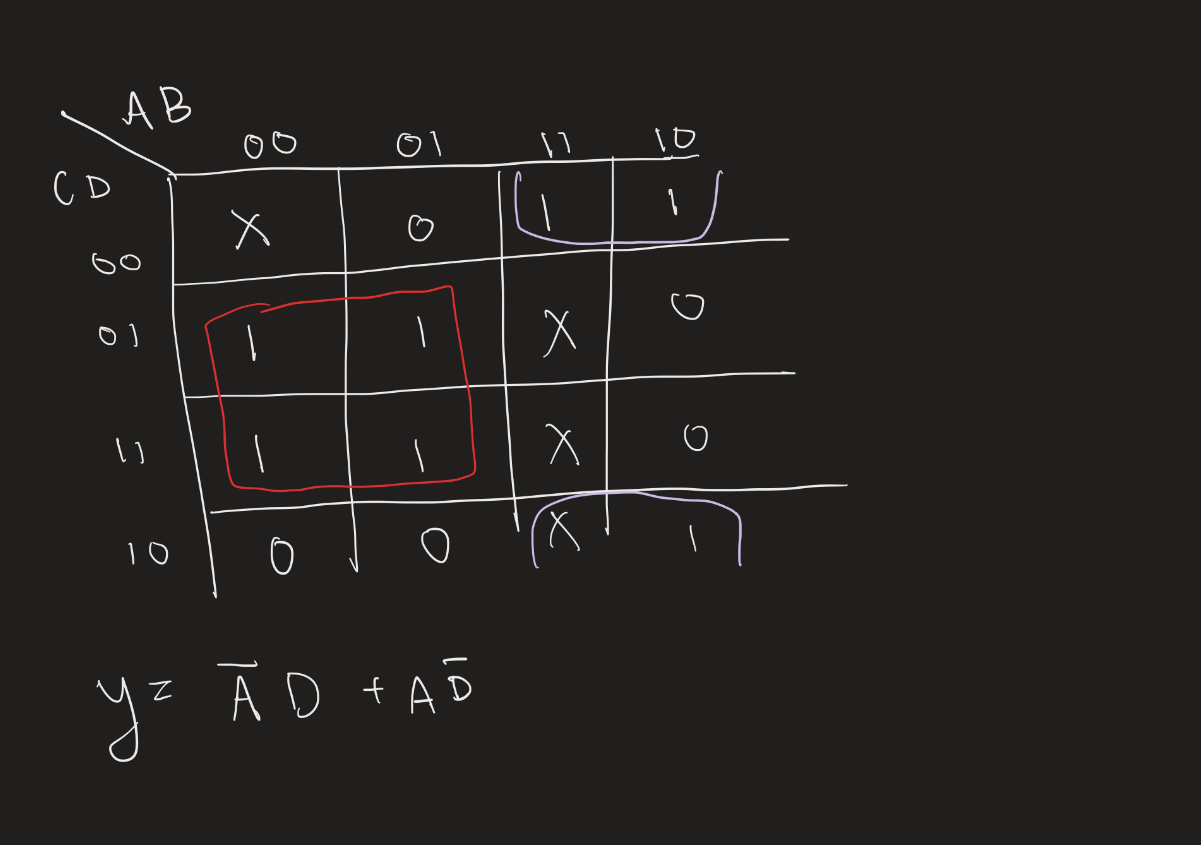 AB
00 01 11 10
CD
00 X 0 1 1
01 1 1 X 0
11 1 1 X 0
10 0 0 X 1
y = A̅ D + A D̅